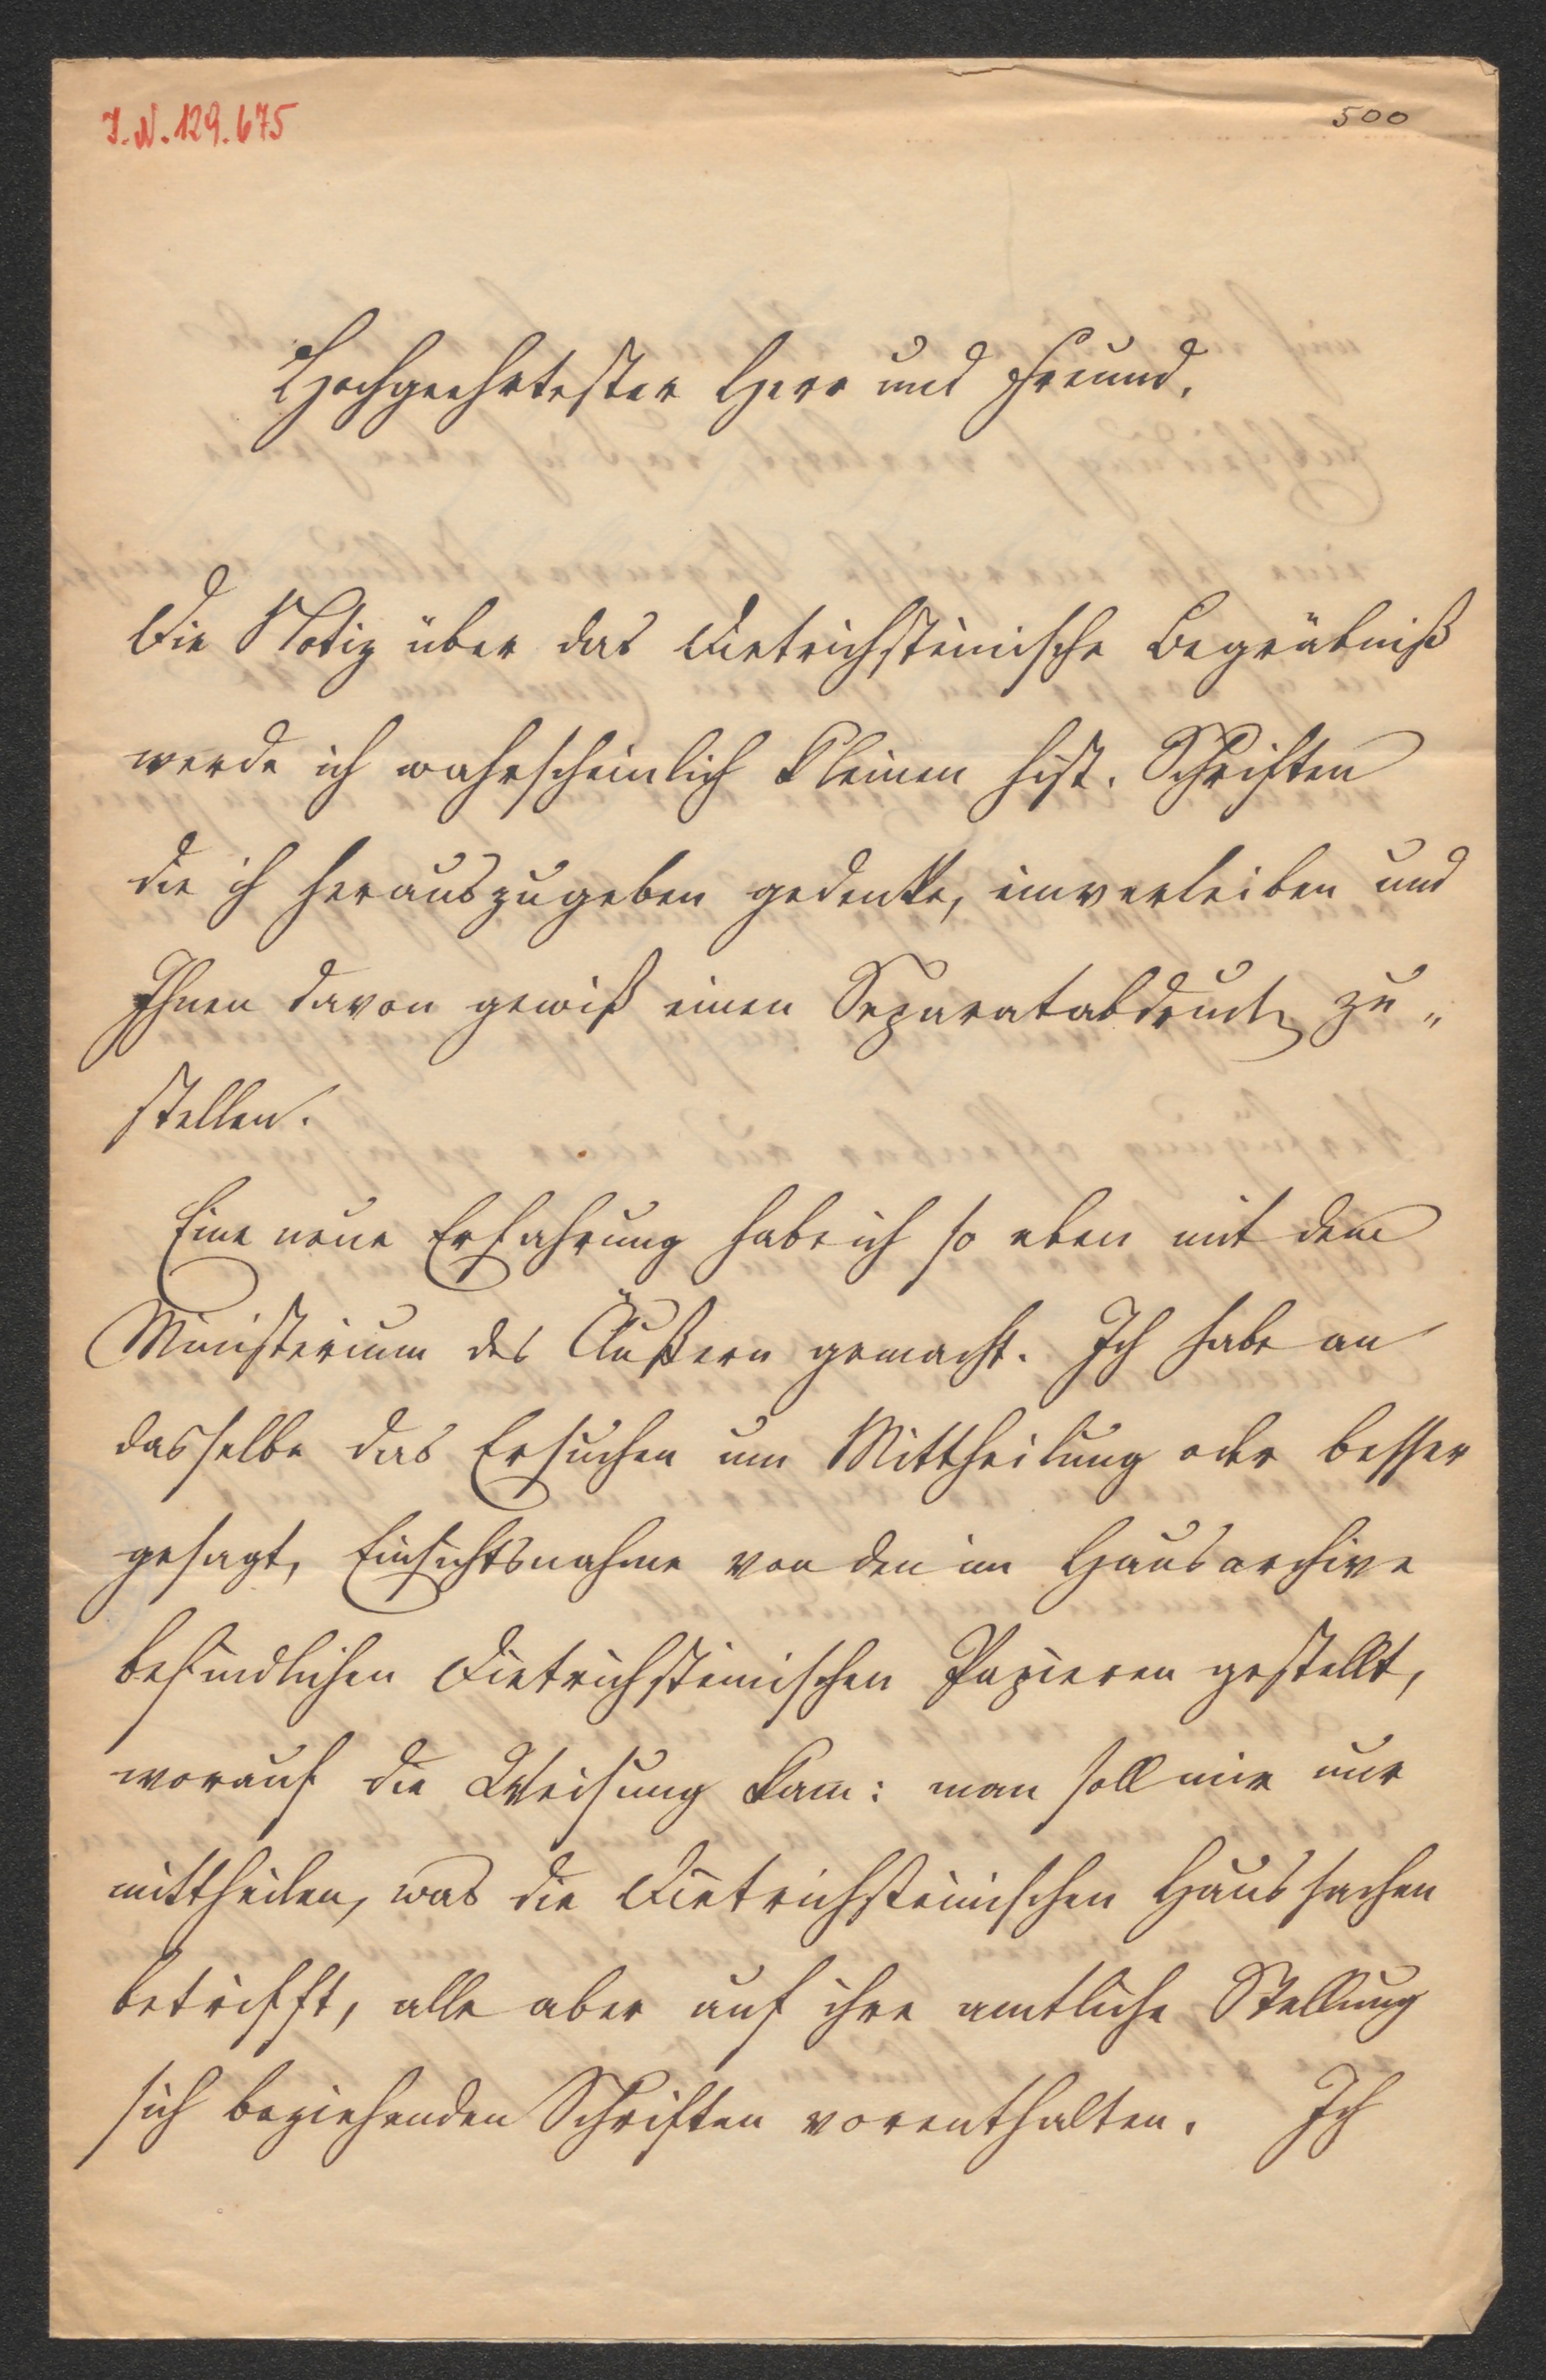 I.N. 129.675
500
Hochgeehrtester Herr und Freund.
Die Notiz über das Dietrichsteinische Begräbniß
werde ich wahrscheinlich kleinen hist. Schriften
die ich herauszugeben gedenke, einverleiben und
Ihnen davon gewiß einen Separatabdruck zu„
stellen.
Eine neue Erfahrung habe ich so eben mit dem
Ministerium des Äußern gemacht. Ich habe an
dasselbe das Ersuchen um Mittheilung oder besser
gesagt, Einsichtsnahme von den im Hausarchive
befindlichen Dietrichsteinischen Papieren gestellt,
worauf die Weisung kam: man soll mir nur
mittheilen, was die Dietrichsteinischen Haussachen
betrifft, alle aber auf ihre amtliche Stellung
sich beziehenden Schriften vorenthalten. Ich